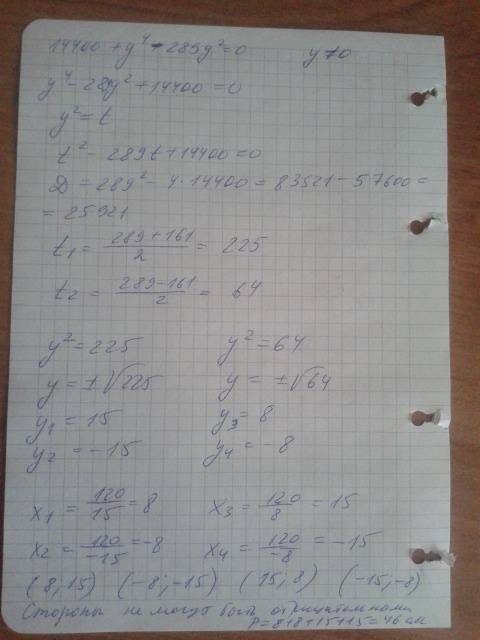 14400 + y⁴ - 289y² = 0 y≠0
y⁴ - 289y² + 14400 = 0
y² = t
t² - 289t + 14400 = 0
D = 289² - 4·14400 = 83521 - 57600 =
= 25921
t₁ = (289+161)/2 = 225
t₂ = (289-161)/2 = 64
y² = 225 y² = 64
y = ±√225 y = ±√64
y₁ = 15 y₃ = 8
y₂ = -15 y₄ = -8
x₁ = 120/15 = 8 x₃ = 120/8 = 15
x₂ = 120/-15 = -8 x₄ = 120/-8 = -15
(8; 15) (-8; -15) (15; 8) (-15; -8)
Стороны не могут быть отрицательными
P = 8+8+15+15 = 46 см